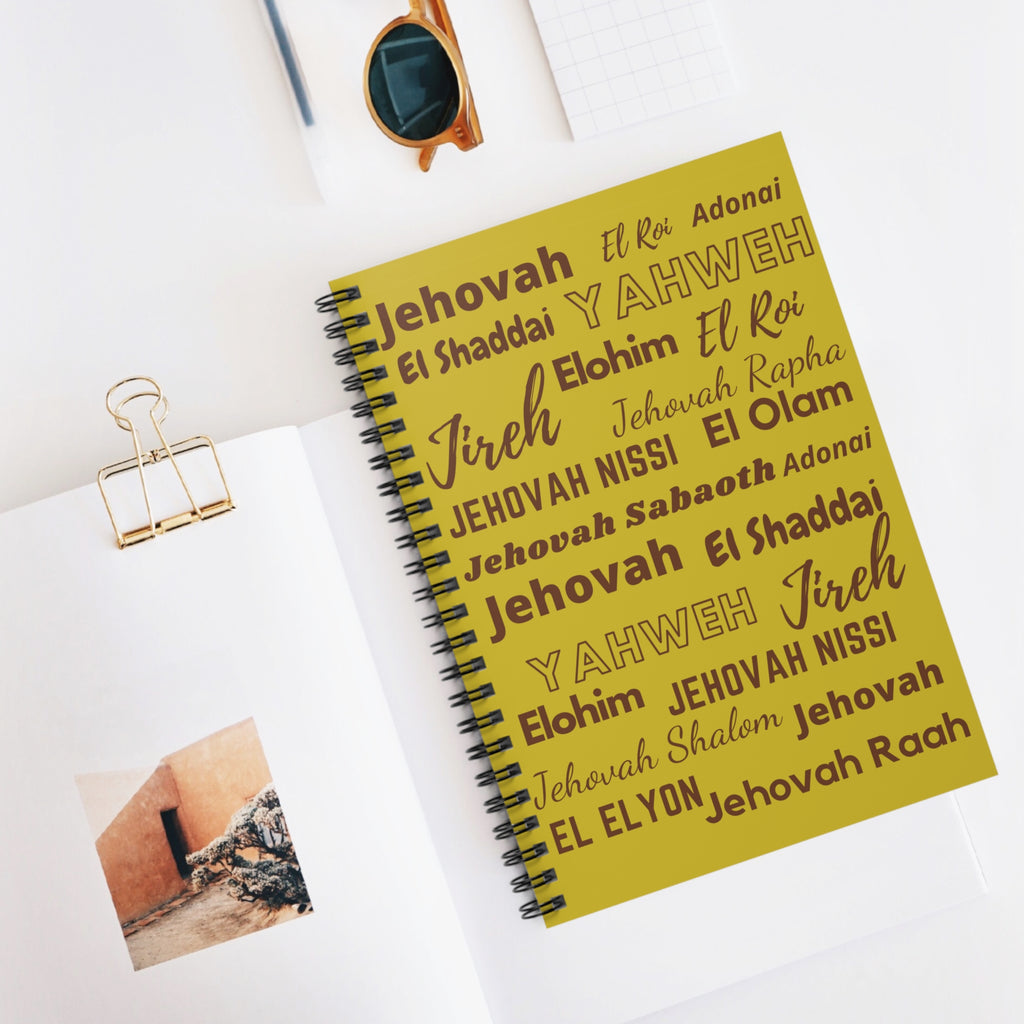 Jehovah El Roi Adonai
El Shaddai YAHWEH
Jireh Elohim El Roi
Jehovah Rapha
JEHOVAH NISSI El Olam
Jehovah Sabaoth Adonai
Jehovah El Shaddai
YAHWEH Jireh
Elohim JEHOVAH NISSI
Jehovah Shalom Jehovah
EL ELYON Jehovah Raah